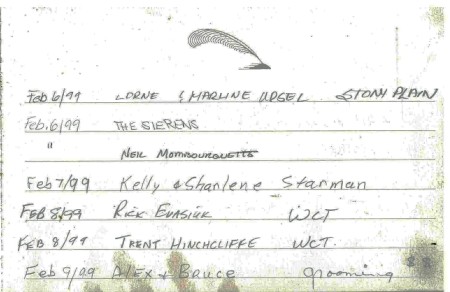 Feb 6/99 LORNE & MARLINE STONY PLAIN
Feb. 6/99 THE SIERENS
" NEIL
Feb 7/99 Kelly & Sharlene Starman
FEB 8/99 RICK EVASIUK WCT
FEB 8/99 TRENT HINCHCLIFFE WCT.
Feb 9/99 ALEX + BRUCE grooming